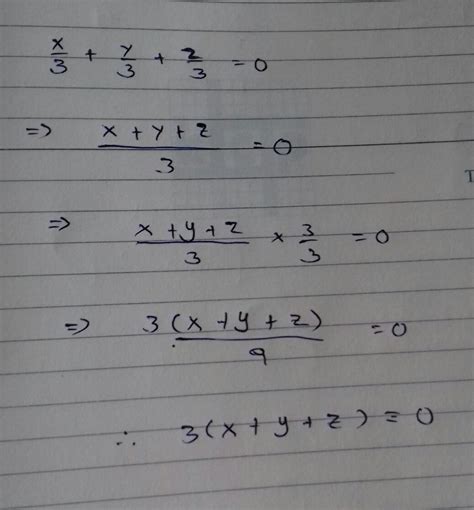 x/3 + y/3 + z/3 = 0
=> (x + y + z)/3 = 0
=> (x + y + z)/3 × 3/3 = 0
=> 3(x + y + z)/9 = 0
∴ 3(x + y + z) = 0